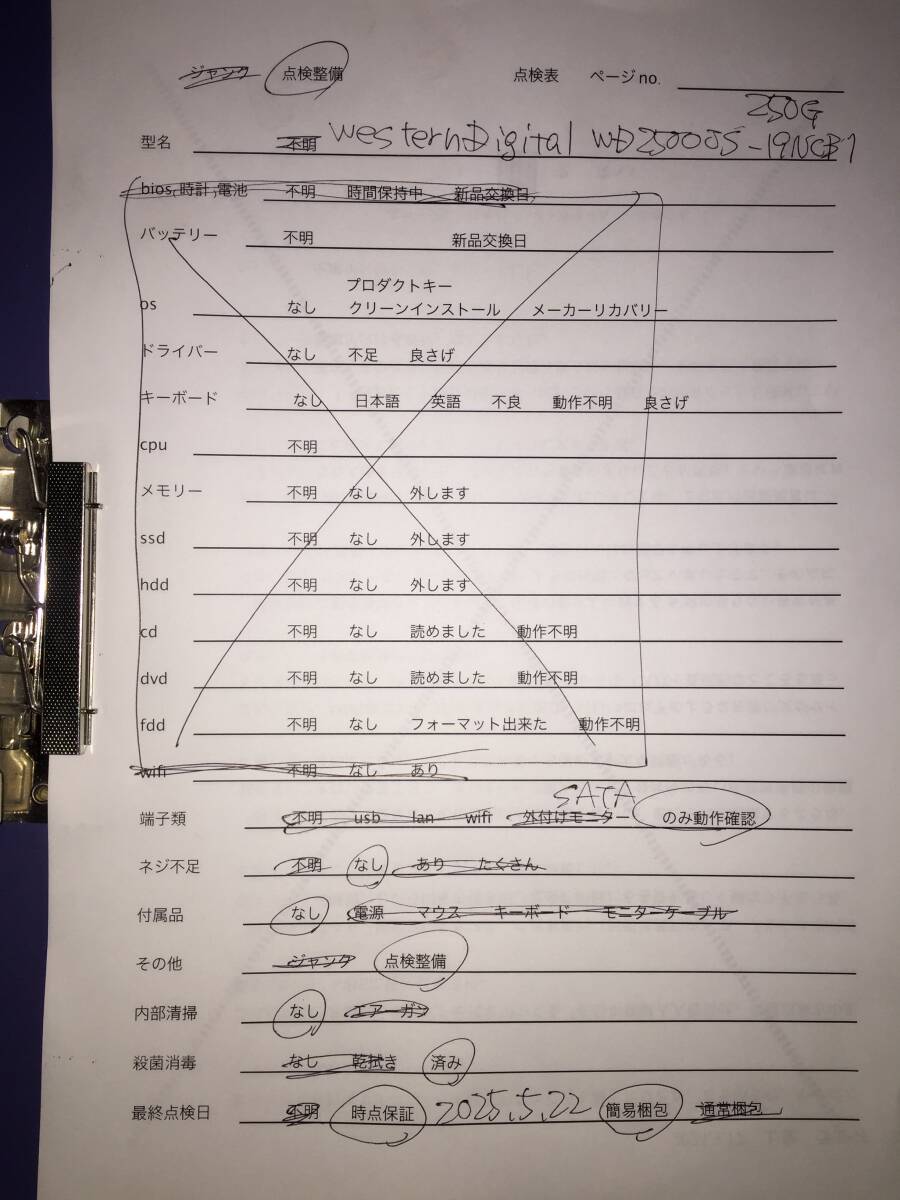 ジャンク 点検整備 点検表 ページno.
250G
型名 不明 Western Digital WD2500JS-19NCB1
bios,時計,電池 不明 時間保持中 新品交換日,
バッテリー 不明 新品交換日
プロダクトキー
os なし クリーンインストール メーカーリカバリー
ドライバー なし 不足 良さげ
キーボード なし 日本語 英語 不良 動作不明 良さげ
cpu 不明
メモリー 不明 なし 外します
ssd 不明 なし 外します
hdd 不明 なし 外します
cd 不明 なし 読めました 動作不明
dvd 不明 なし 読めました 動作不明
fdd 不明 なし フォーマット出来た 動作不明
wifi 不明 なし あり
SATA
端子類 不明 usb lan wifi 外付けモニター のみ動作確認
ネジ不足 不明 なし あり たくさん
付属品 なし 電源 マウス キーボード モニターケーブル
その他 ジャンク 点検整備
内部清掃 なし エアーガン
殺菌消毒 なし 乾拭き 済み
最終点検日 不明 時点保証 2025,5,22 簡易梱包 通常梱包